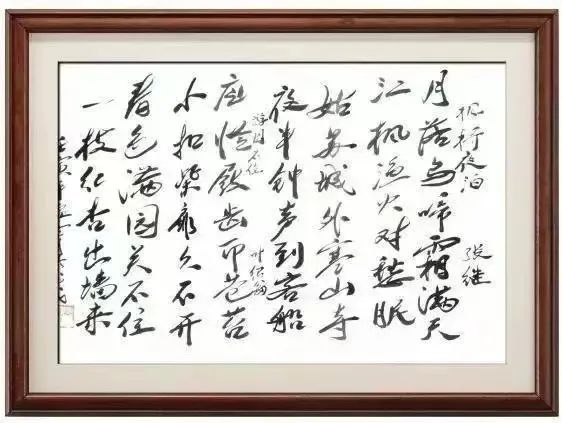 枫桥夜泊 张继
月落乌啼霜满天
江枫渔火对愁眠
姑苏城外寒山寺
夜半钟声到客船
游园不值 叶绍翁
应怜屐齿印苍苔
小扣柴扉久不开
春色满园关不住
一枝红杏出墙来
壬寅年